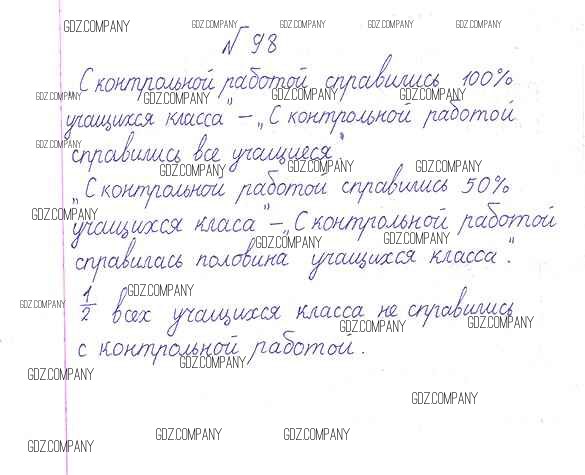 GDZ.COMPANY GDZ.COMPANY GDZ.COMPANY GDZ.COMPANY GDZ.COMPANY
N 98
„С контрольной работой справились 100%
GDZ.COMPANY GDZ.COMPANY GDZ.COMPANY GDZ.COMPANY
учащихся класса" – „С контрольной работой
GDZ.COMPANY
справились все учащиеся".
GDZ.COMPANY GDZ.COMPANY GDZ.COMPANY
„С контрольной работой справились 50%
GDZ.COMPANY
учащихся класа" – „С контрольной работой
GDZ.COMPANY GDZ.COMPANY
справилась половина учащихся класса".
GDZ.COMPANY GDZ.COMPANY
1/2 всех учащихся класса не справились
GDZ.COMPANY GDZ.COMPANY
с контрольной работой.
GDZ.COMPANY GDZ.COMPANY
GDZ.COMPANY
GDZ.COMPANY GDZ.COMPANY GDZ.COMPANY